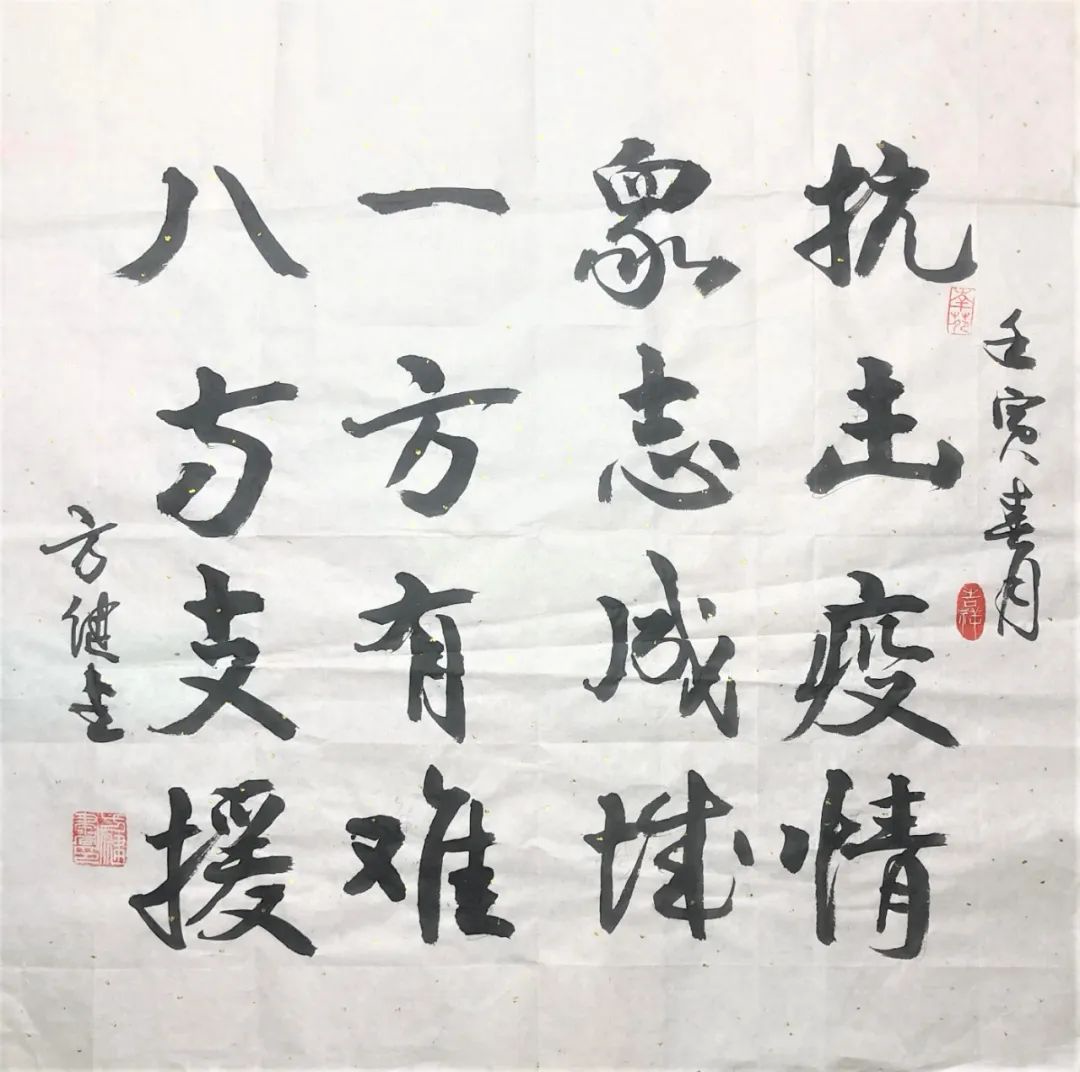 壬寅春月
吉祥
抗击疫情
衆志成城
一方有难
八方支援
方健書